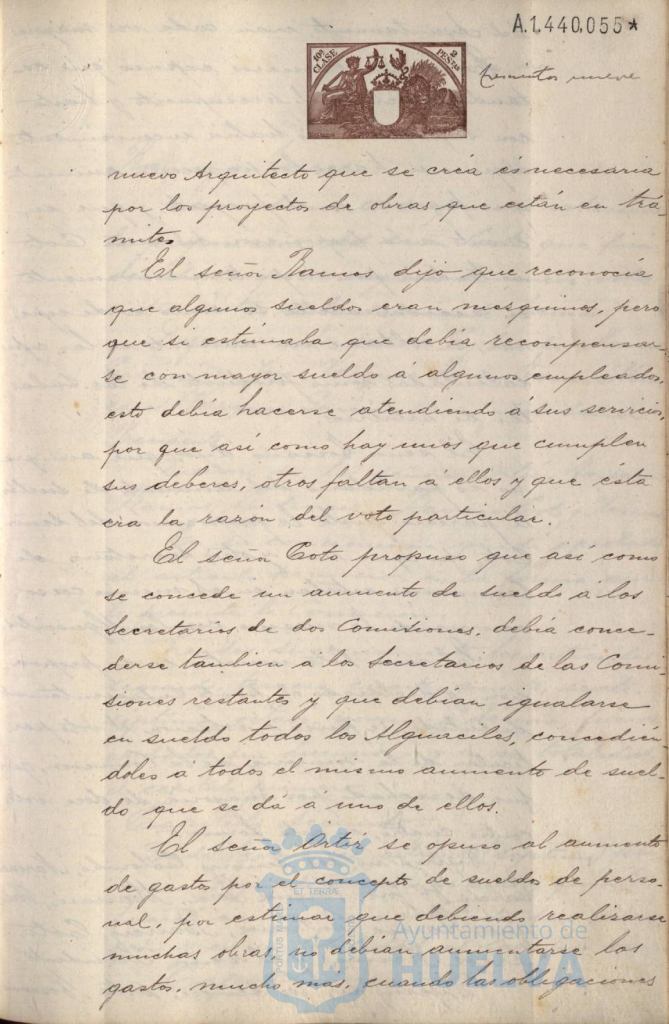 A.1.440.055*
10ª CLASE
2 PESTAS
trescientos nueve
nuevo Arquitecto que se créa és necesaria
por los proyectos de obras que están en trá
mite.
El señor Ramos dijo que reconocía
que algunos sueldos eran mesquinos, pero
que si estimaba que debía recompensar-
se con mayor sueldo á algunos empleados,
esto debía hacerse atendiendo á sus servicios,
por que así como hay unos que cumplen
sus deberes, otros faltan á ellos y que ésta
era la razón del voto particular.
El señor Coto propuso que así como
se concede un aumento de sueldo á los
Secretarios de dos Comisiones, debía conce-
derse tambien á los Secretarios de las Comi-
siones restantes y que debían igualarse
en sueldo todos los Alguaciles, concedién
doles á todos el mismo aumento de suel-
do que se dá á uno de ellos.
El señor se opuso al aumento
de gastos por el concepto de sueldos de perso-
nal, por estimar que debiendo realizarse
muchas obras, no debían aumentarse los
gastos, mucho mas, cuando las obligaciones
ET TERRAE
Ayuntamiento de
HUELVA